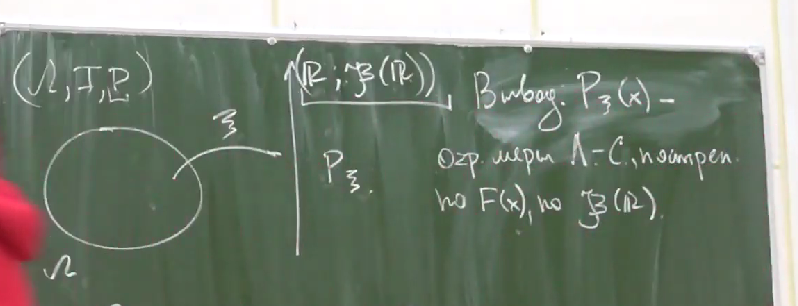 (Ω, F, P)
(ℝ; ℬ(ℝ))
ξ
P_ξ.
Ω
Вывод: P_ξ(x) –
огр. меры Л-С, построен.
по F(x), по ℬ(ℝ).